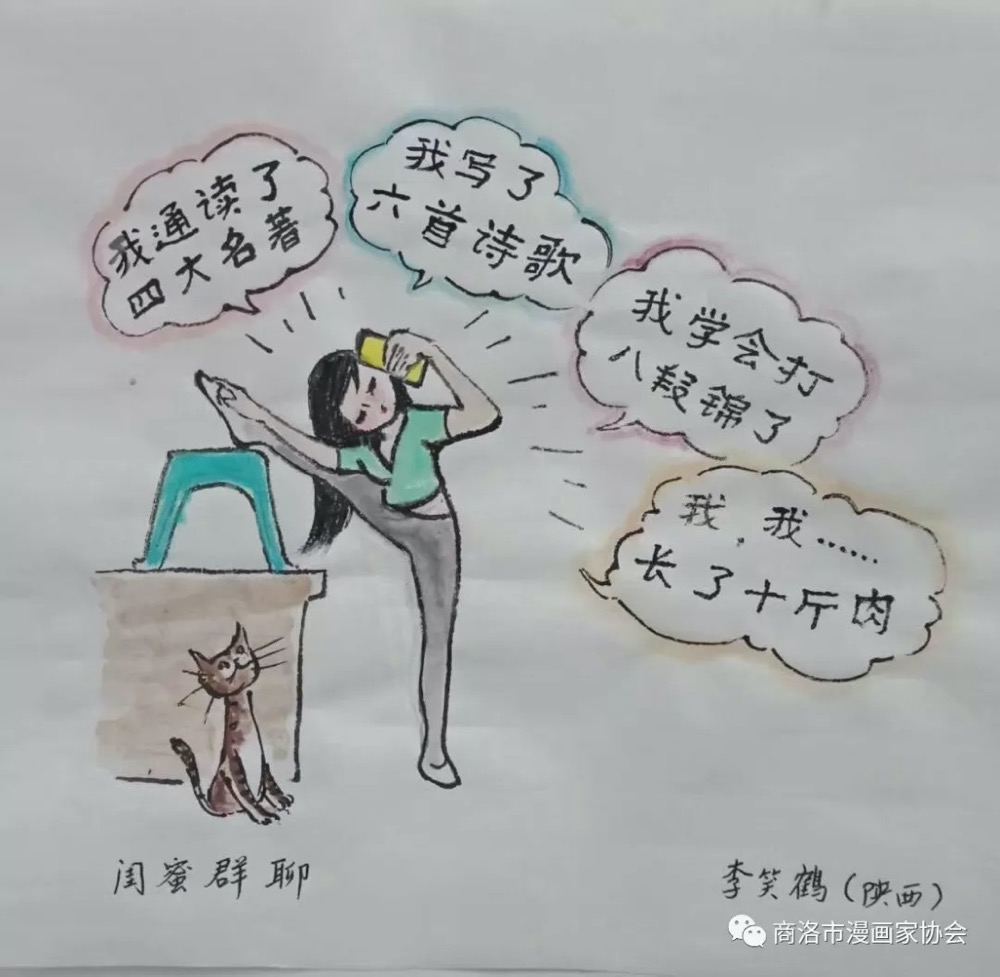 我通读了
四大名著
我写了
六首诗歌
我学会打
八段锦了
我，我……
长了十斤肉
闺蜜群聊
李笑鹤（陕西）
商洛市漫画家协会